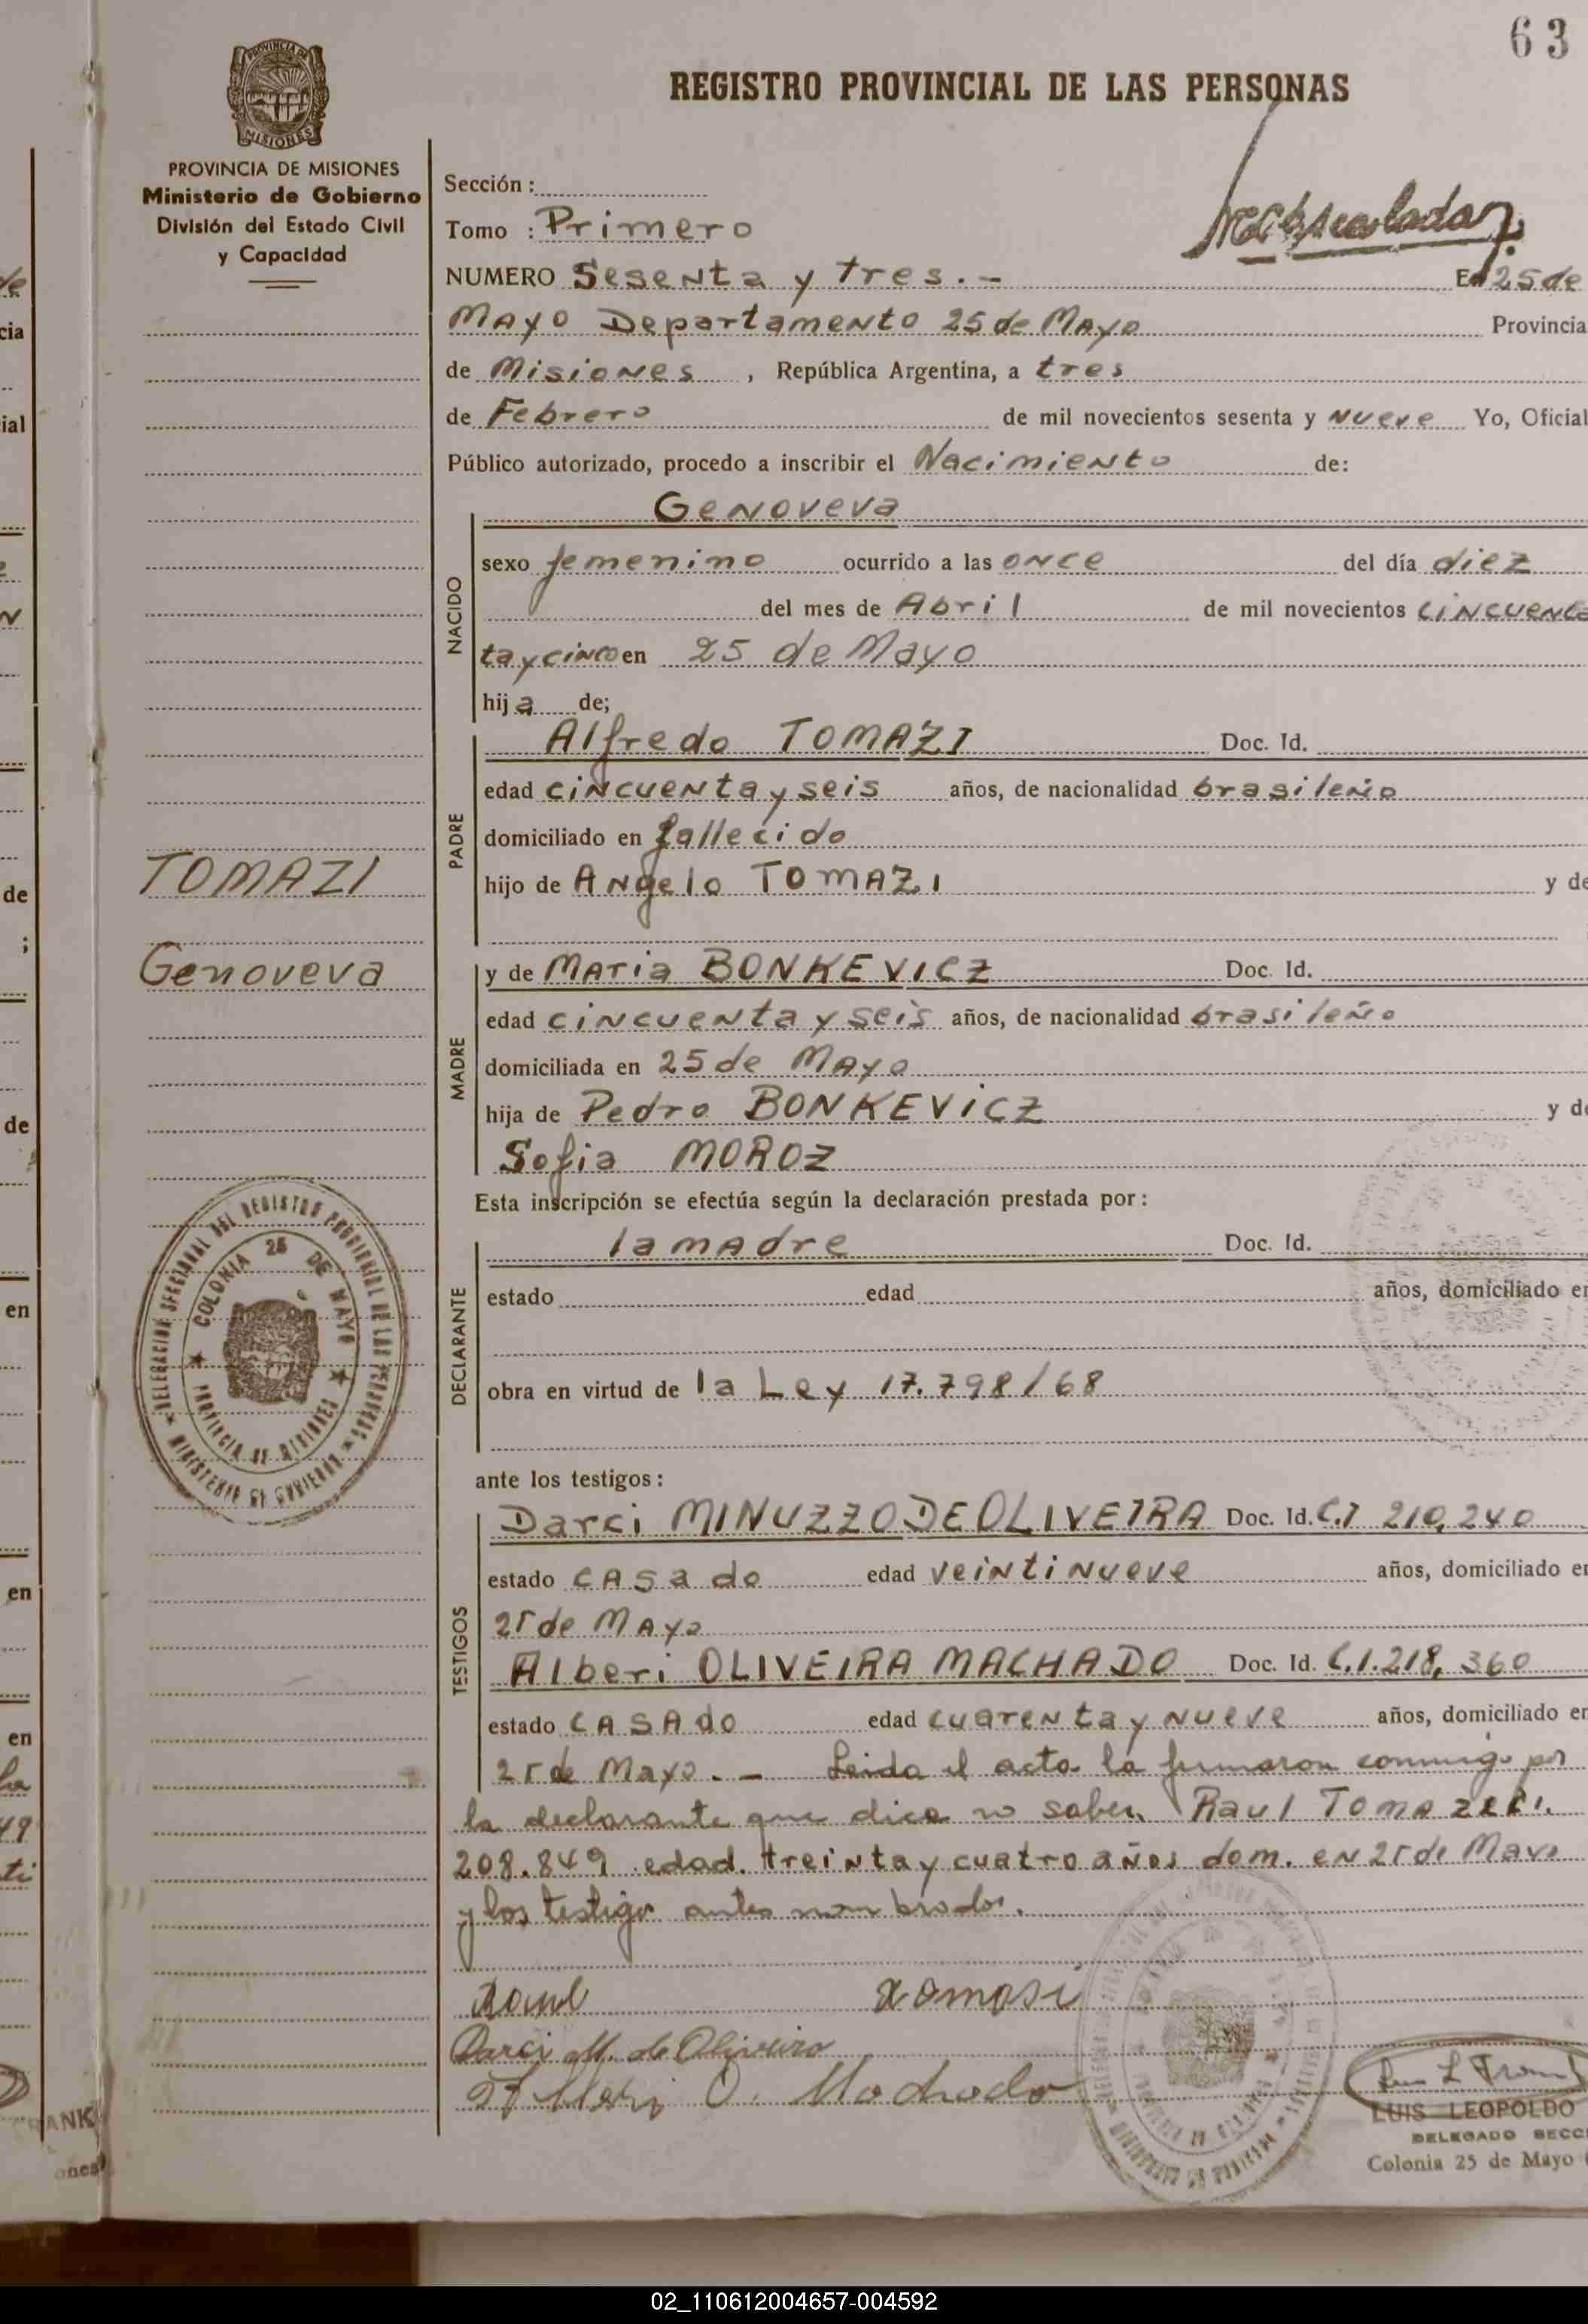 63
REGISTRO PROVINCIAL DE LAS PERSONAS
PROVINCIA DE
MISIONES
PROVINCIA DE MISIONES
Ministerio de Gobierno
División del Estado Civil
y Capacidad
Sección :
Tomo : Primero
NUMERO Sesenta y tres. - En 25 de
Mayo Departamento 25 de Mayo Provincia
de Misiones , República Argentina, a tres
de Febrero de mil novecientos sesenta y nueve Yo, Oficial
Público autorizado, procedo a inscribir el Nacimiento de:
NACIDO
Genoveva
sexo femenino ocurrido a las once del día diez
del mes de Abril de mil novecientos cincuenta
ta y cinco en 25 de Mayo
hija de;
PADRE
Alfredo TOMAZI Doc. Id.
edad cincuenta y seis años, de nacionalidad brasileño
domiciliado en fallecido
hijo de Angelo TOMAZI y de
TOMAZI
Genoveva
MADRE
y de Maria BONKEVICZ Doc. Id.
edad cincuenta y seis años, de nacionalidad brasileño
domiciliada en 25 de Mayo
hija de Pedro BONKEVICZ y de
Sofia MOROZ
Esta inscripción se efectúa según la declaración prestada por:
DECLARANTE
la madre Doc. Id.
estado edad años, domiciliado en
obra en virtud de la Ley 17.798/68
DELEGACION SECCIONAL DEL REGISTRO PROVINCIAL DE LAS PERSONAS
MINISTERIO DE GOBIERNO
COLONIA 25 DE MAYO
PROVINCIA DE MISIONES
ante los testigos:
TESTIGOS
Darci MINUZZO DE OLIVEIRA Doc. Id. C.I 210,240
estado casado edad veintinueve años, domiciliado en
25 de Mayo
Alberi OLIVEIRA MACHADO Doc. Id. C.I. 218, 360
estado casado edad cuarenta y nueve años, domiciliado en
25 de Mayo. - Leida el acta la firmaron conmigo por
la declarante que dice no saber, Raul TOMAZI C.I.
208.849 edad. treinta y cuatro años dom. en 25 de Mayo
y los testigos antes nombrados.
Raul Tomasi
Darci M. de Oliveira
Alberi O. Machado
LUIS LEOPOLDO
DELEGADO SECC
Colonia 25 de Mayo
02_110612004657-004592